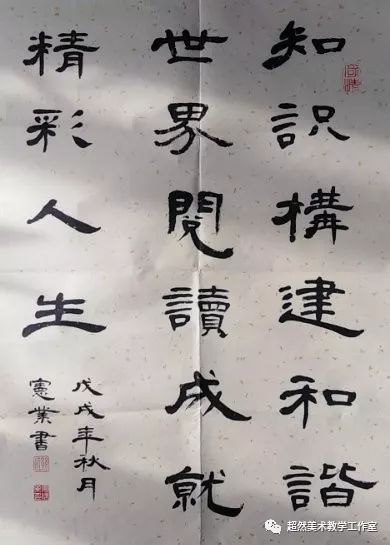 知识構建和諧
世界閱讀成就
精彩人生
戊戌年秋月
憲業書
超然美术教学工作室